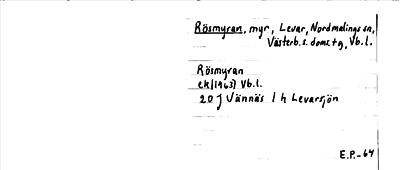 Rösmyran, myr, Levar, Nordmalings sn,
Västerb. s. doms. tg, Vb. l.
Rösmyran
ek (1963) Vb. l.
20 J Vännäs 1 h Levarsjön
E.P. - 64